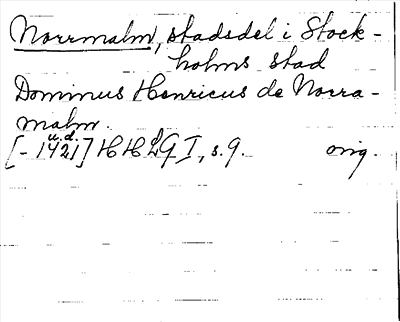 Norrmalm, stadsdel i Stock-
holms stad
Dominus Henricus de Norra-
malm.
u.d.
[-1421] HHLG I, s.9. orig.